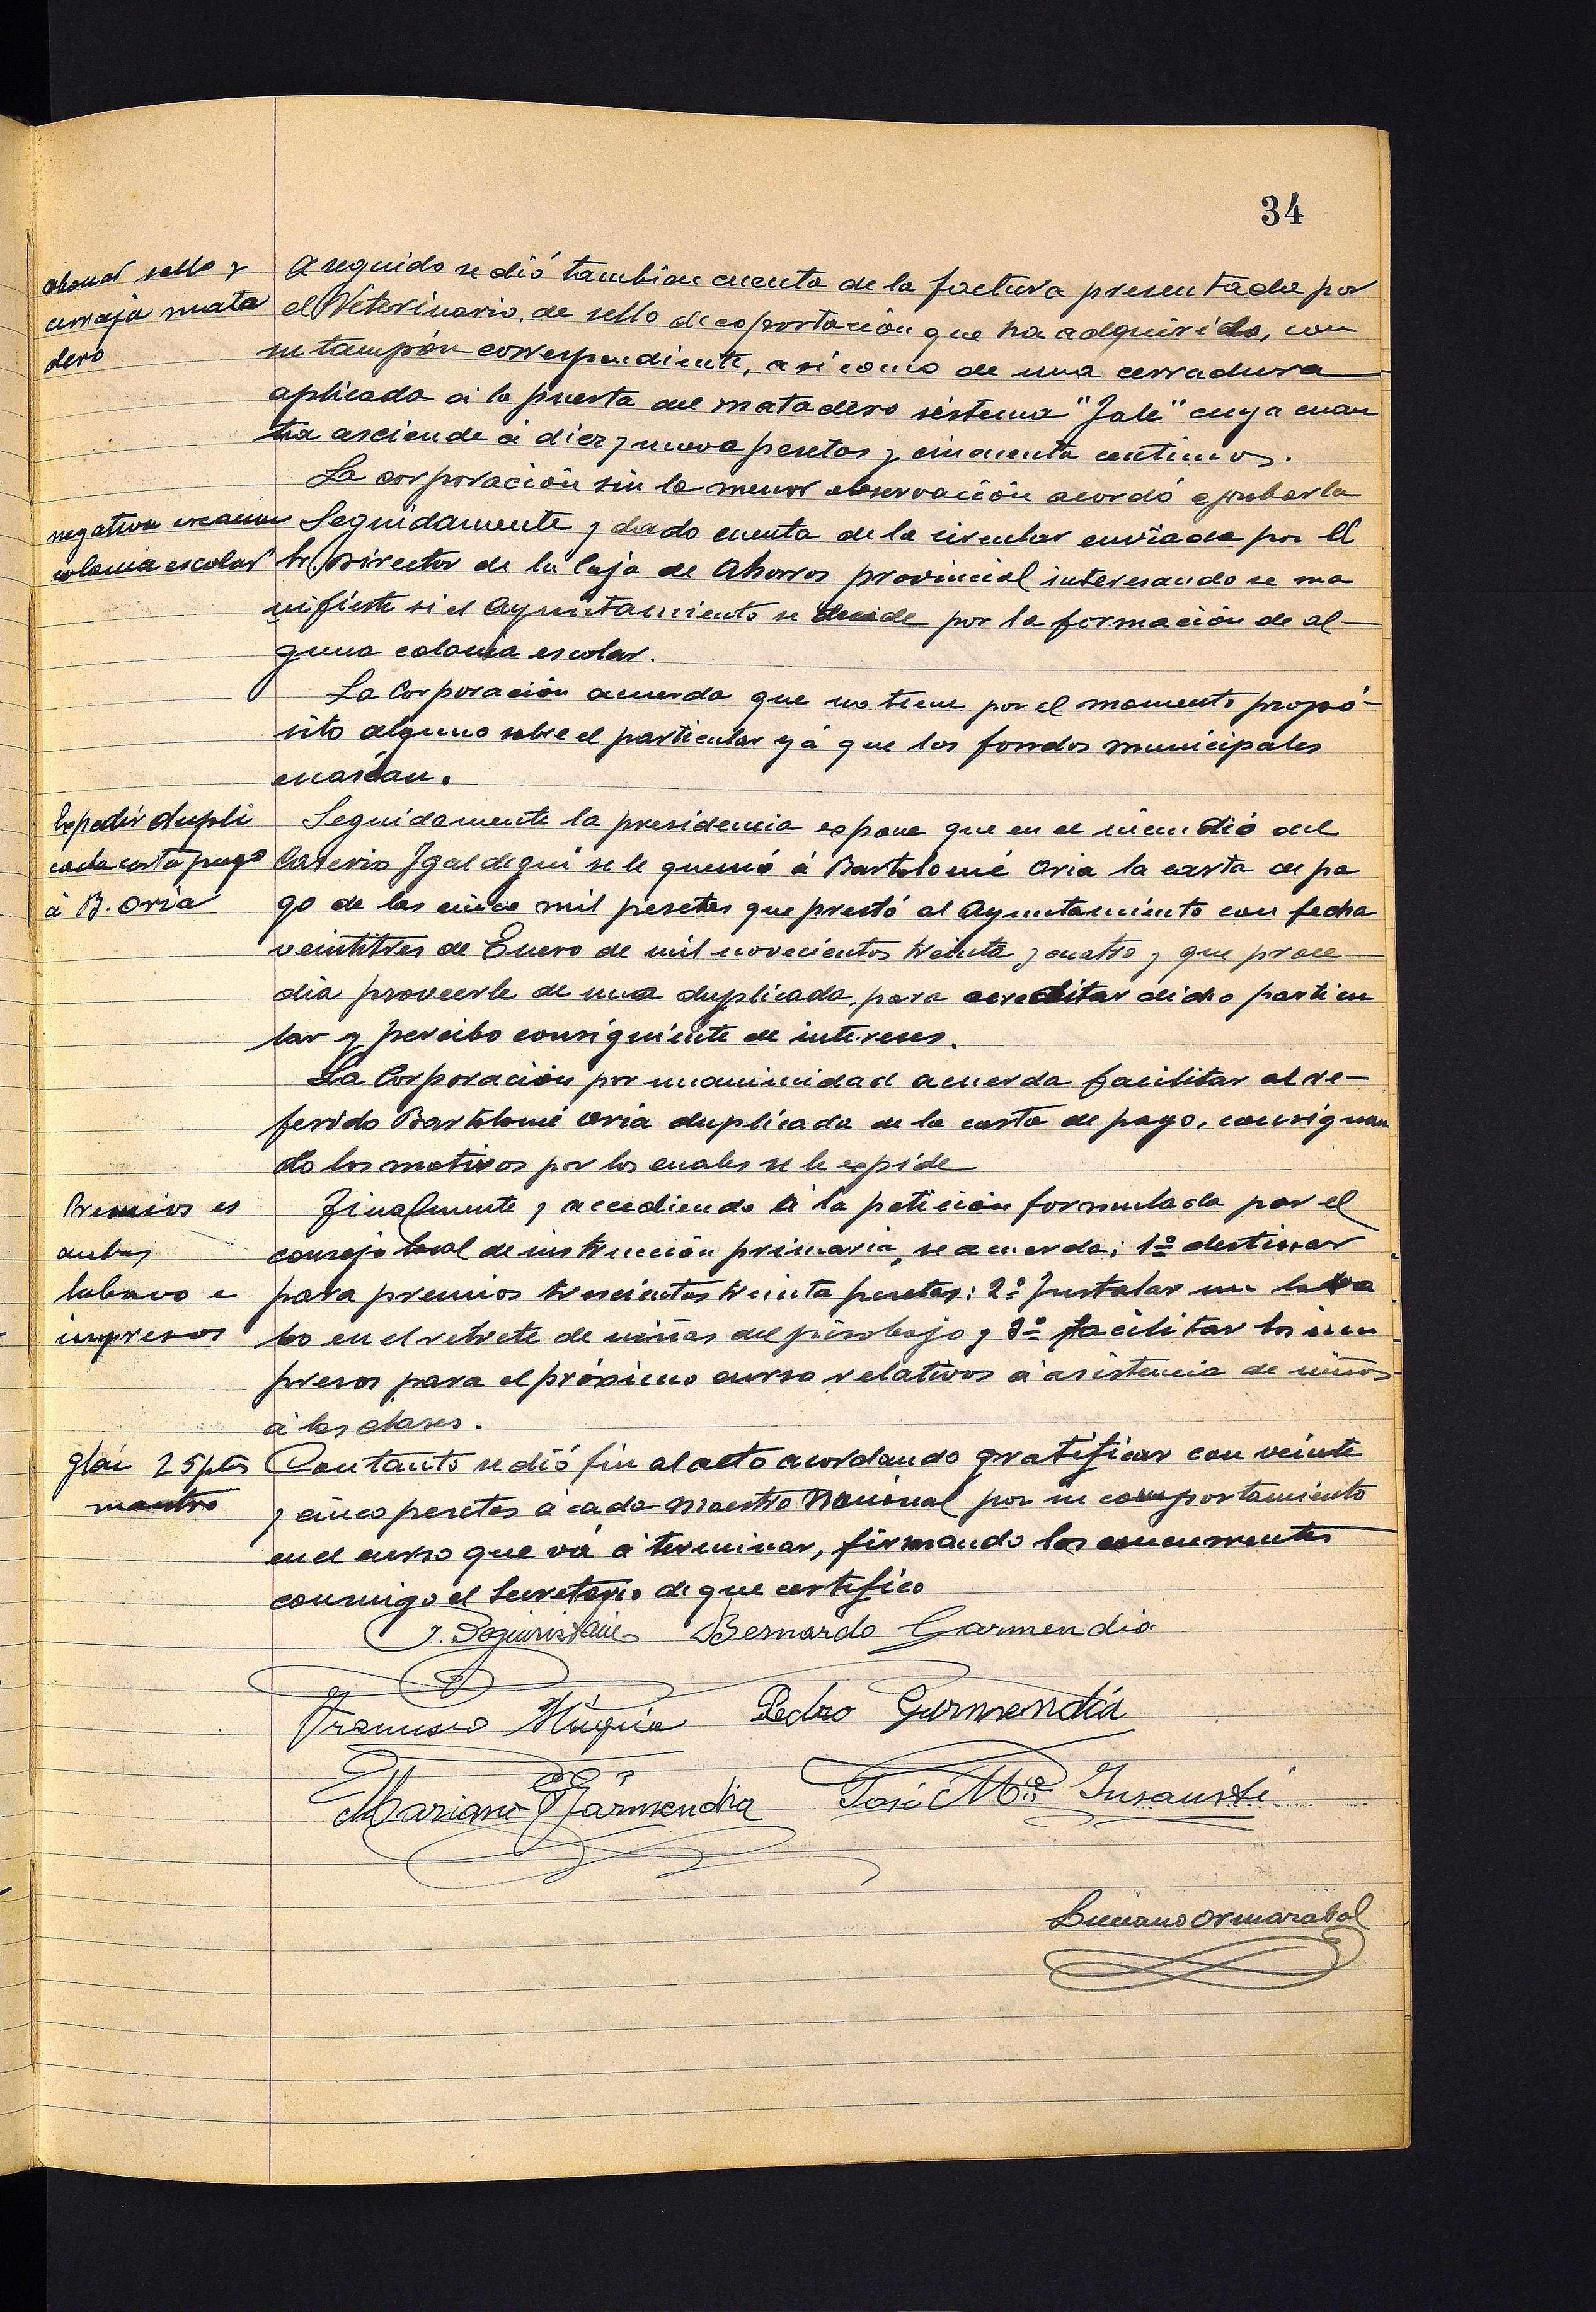 34
abonar sello y
cerraja mata
dero
A seguido se dió tambien cuenta de la factura presentada por
el Veterinario, de sello de exportación que ha adquirido, con
su tampón correspondiente, asi como de una cerradura
aplicada á la puerta del matadero sistema "Jale" cuya cuan
tia asciende á diez y nueve pesetas y cincuenta centimos.
La corporación sin la menor observación acordó aprobarla
negativa creacion
colonia escolar
Seguidamente y dado cuenta de la circular enviada por el
Sr. Director de la Caja de Ahorros provincial interesando se ma
nifieste si el Ayuntamiento se decide por la formación de al-
guna colonia escolar.
La Corporación acuerda que no tiene por el momento propó-
sito alguno sobre el particular yá que los fondos municipales
escasean.
Expedir dupli
cada carta pago
á B. Oria
Seguidamente la presidencia expone que en el incendio del
Caserio Igaldegui se le quemó á Bartolomé Oria la carta de pa
go de las cinco mil pesetas que prestó al Ayuntamiento con fecha
veintitres de Enero de mil novecientos treinta y cuatro y que proce-
dia proveerle de una duplicada, para acreditar dicho particu
lar y percibo consiguiente de intereses.
La Corporación por unanimidad acuerda facilitar al re-
ferido Bartolomé Oria duplicada de la carta de pago, consignan
do los motivos por los cuales se le expide
Premios es
cuelas,
labavo e
impresos
Finalmente y accediendo á la petición formulada por el
consejo local de instrucción primaria, se acuerda; 1º destinar
para premios trescientas treinta pesetas: 2º Instalar un lava
bo en el retrete de niñas del piso bajo y 3º facilitar los im
presos para el próximo curso relativos á asistencia de niños
á las clases.
25 ptas
maestro
Con tanto se dió fin al acto acordando gratificar con veinte
y cinco pesetas á cada Maestro Nacional por su comportamiento
en el curso que vá á terminar, firmando los concurrentes
conmigo el Secretario de que certifico
Bernardo Garmendia
Francisco Múgica Pedro Garmendia
Mariano Garmendia José Mª Insausti
Luciano Ormazabal